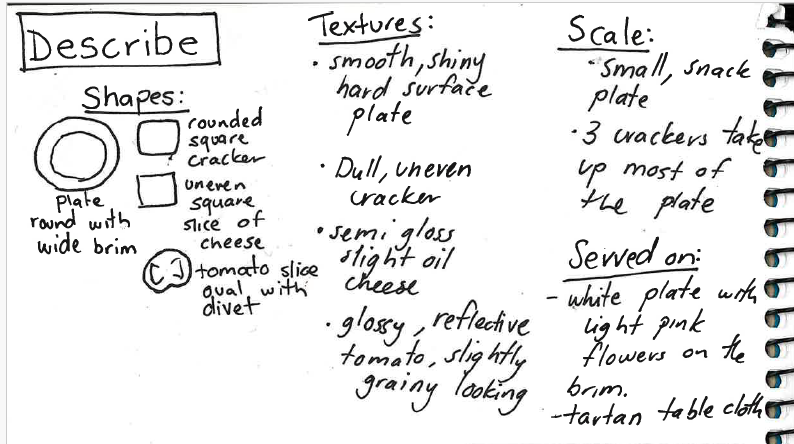 Describe
Shapes:
rounded
square
cracker
plate
round with
wide brim
uneven
square
slice of
cheese
tomato slice
oval with
divet
Textures:
• smooth, shiny
hard surface
plate
• Dull, uneven
cracker
• semi gloss
slight oil
cheese
• glossy, reflective
tomato, slightly
grainy looking
Scale:
• small, snack
plate
• 3 crackers take
up most of
the plate
Served on:
- white plate with
light pink
flowers on the
brim.
- tartan table cloth